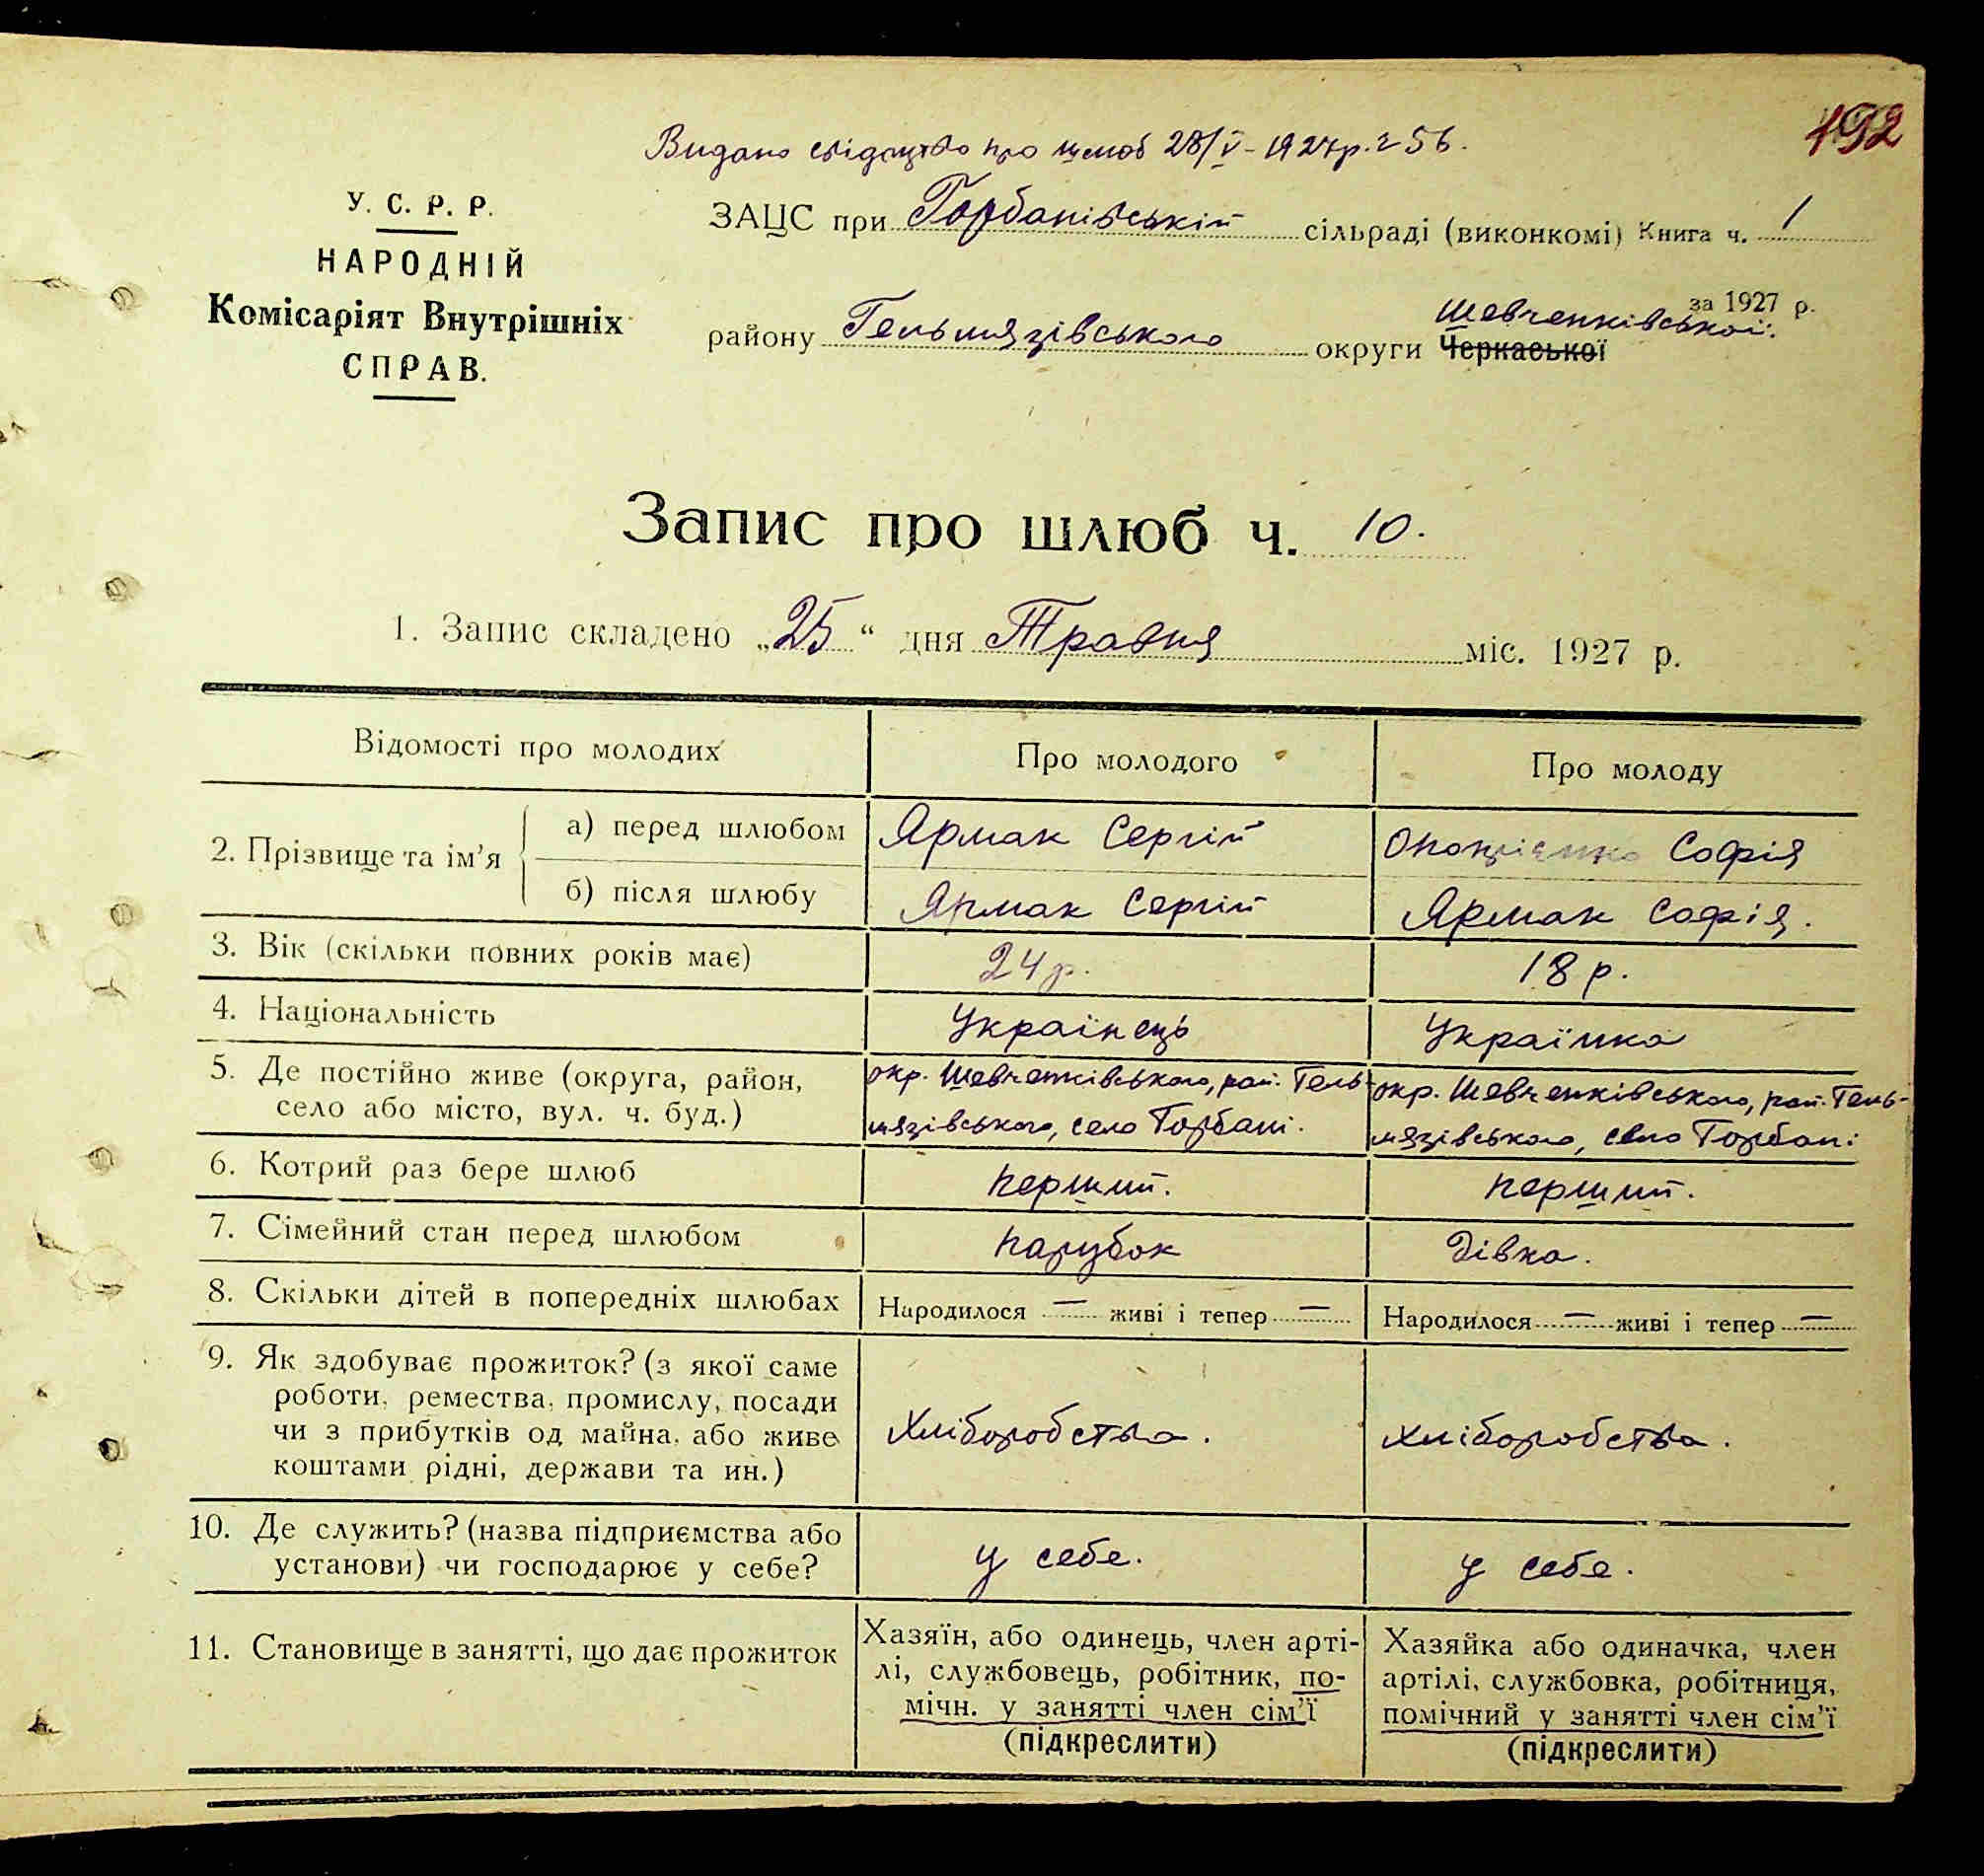 192
Видано свідоцтво про шлюб 28/V - 1927р. ч 56.
У. С. Р. Р.
НАРОДНІЙ
Комісаріят Внутрішніх
СПРАВ.
ЗАЦС при Горбанівській сільраді (виконкомі) Книга ч. 1
за 1927 р.
Шевченківської.
району Гельмязівського округи Черкаської
Запис про шлюб ч. 10.
1. Запис складено „25“ дня Травня міс. 1927 р.
Відомості про молодих Про молодого Про молоду
2. Прізвище та ім’я
а) перед шлюбом Ярмак Сергій Софія
б) після шлюбу Ярмак Сергій Ярмак Софія.
3. Вік (скільки повних років має) 24 р. 18 р.
4. Національність Українець Українка
5. Де постійно живе (округа, район,
село або місто, вул. ч. буд.)
окр. Шевченківського, рай. Гель-
мязівського, село Горбані.
окр. Шевченківського, рай. Гель-
мязівського, село Горбані
6. Котрий раз бере шлюб перший. перший.
7. Сімейний стан перед шлюбом парубок дівка.
8. Скільки дітей в попередніх шлюбах Народилося — живі і тепер — Народилося — живі і тепер —
9. Як здобуває прожиток? (з якої саме
роботи, ремества, промислу, посади
чи з прибутків од майна, або живе
коштами рідні, держави та ин.)
Хліборобства. хліборобства.
10. Де служить? (назва підприємства або
установи) чи господарює у себе?
у себе. у себе.
11. Становище в занятті, що дає прожиток
Хазяїн, або одинець, член арті-
лі, службовець, робітник, по-
мічн. у занятті член сім’ї
(підкреслити)
Хазяйка або одиначка, член
артілі, службовка, робітниця,
помічний у занятті член сім’ї
(підкреслити)